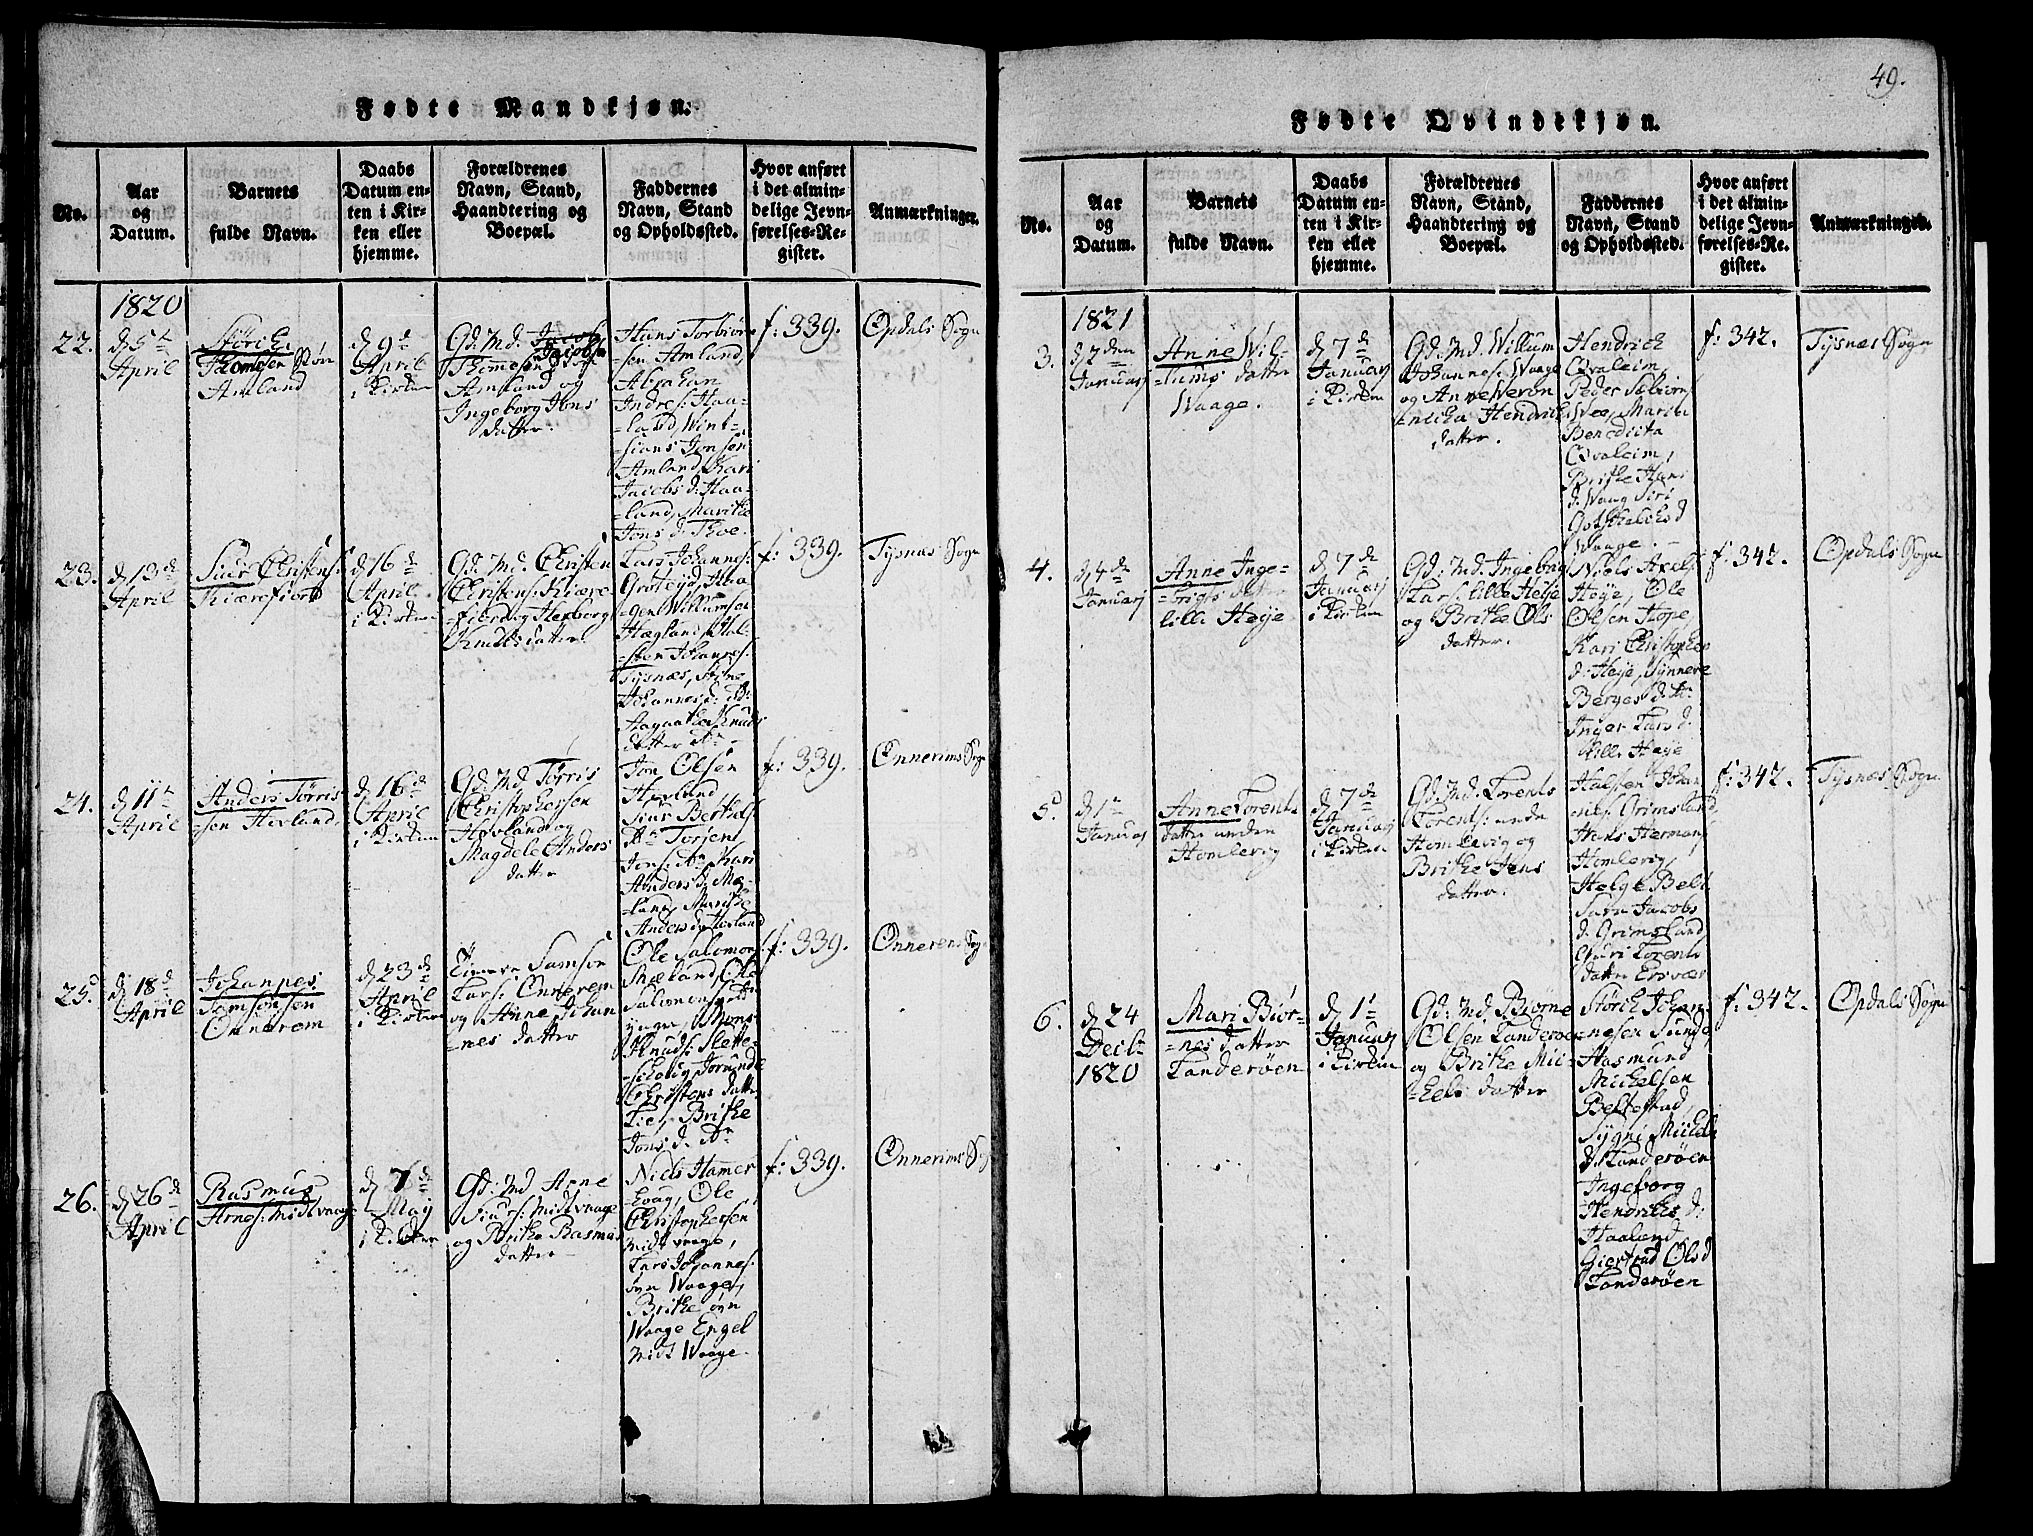 Fødte Mandkjøn.
No.
Aar
og
Datum.
Barnets
fulde Navn.
Daabs
Datum en-
ten i Kir-
ken eller
hjemme.
Forældrenes
Navn, Stand,
Haandtering og
Boepæl.
Faddernes
Navn, Stand
og Opholdssted.
Hvor anført
i det almin-
delige Jevn-
førelses-Re-
gister.
Anmærkninger.
1820
22.
d 5te
April
Størche
Thomesen Røn
Amland
d 9d
April
i Kirken
Gd. Md. Jacob
Thomesen
Amland og
Ingeborg Jons
datter.
Hans Torbiørn
sen Amland,
Abraham
Andres: Haa-
land, Wint-
sians Jonsen
Amland, Kari
Jacobs d: Haa-
land, Marithe
Jons d. Thoe.
f: 339.
Opdals Sogn
23.
d 13de
April
Siur Christens:
Kiærefiord
d 16de
April
i Kirken
Gd. Md. Christen
Christens: Kiære-
fiord og Herborg
Knuds datter
Lars Johannes:
Haa-
gen Willumsen
Hægland, Hal-
sten Johannes:
Tysnæs,
Johannes d:
Aagaathe Knuds
datter
f: 339.
Tysnæs Sogn
24.
d 11te
April
Anders Tørris
sen Hevland,
d 16de
April
i Kirken
Gd. Md. Tørris
Christophersen
Hevland og
Magdele Anders
datter
Jon Olsen
Hevland
Siur Berthels
Torjen
Jons: Kari
Anders d. Mæ-
land, Marithe
Anders d. Hevland
f: 339.
Onnerims Sogn
25.
d 18de
April
Johannes
Samsonsen
Onnerem
d 23de
April
i Kirken
Samson
Lars: Onnerem
og Anne Johan
nes datter
Ole Salomons:
Mæland, Ole
Salomons:
Mons
Knuds: Slette-
Jorunde
Christens datter
Lie, Brithe
Jons d.
f: 339.
Onnerems Sogn
26.
d 26de
April
Rasmus
Arnes: Midtvaage
d 7de
May
i Kirken
Gd: Md Arne
Siurs: Midtvaage
og Brithe Rasmus
datter
Niels Hamer
Ole
Christophersen
Midt vaage,
Lars Johannes:
øvn Waage,
Brithe øvn
Waage Engel
Midt Waage.
f: 339.
Onnerims Sogn
49.
Fødte Qvindekjøn.
No.
Aar
og
Datum.
Barnets
fulde Navn.
Daabs
Datum en-
ten i Kir-
ken eller
hjemme.
Forældrenes
Navn, Stand,
Haandtering og
Boepæl.
Faddernes
Navn, Stand
og Opholdssted.
Hvor anført
i det almin-
delige Jevn-
førelses-Re-
gister.
Anmærkninger.
1821
3.
d 2den
Januarj
Anne Wil-
lums datter
Waage.
d 7de
Januarj
i Kirken
Gd. Md. Willum
Johannes: Waage
og Anne Weron
necka Hendrichs
datter.
Hendrich
Qvaleim,
Peder
Wee, Maria
Benedicta
Qvaleim,
Brithe Hans
d. Waag Siri
Gotschalchs d
Waage.
f: 342.
Tysnæs Sogn
4.
d 4de
Januarj
Anne Inge-
brigts datter
lille Høye
d 7de
Januarj
i Kirken
Gd: Md. Ingebrigt
Lars: lille Høye
og Brithe Ols
datter.
Niels Axels:
Høye, Ole
Olsen Hope,
Kari Christopher
d: Høye, Synneve
Berges d.
Inger Lars d.
lille Høye
f: 342.
Opdals Sogn
5.
d 1te
Januarj
Anne Lorents
datter
Homlevig
d 7de
Januarj
i Kirken
Gd: Md: Lorents
Lorents:
Homlevig og
Brithe Jens
datter.
Halsten Johan
nes: Grimsland,
Hans Hermans:
Homlevig,
Helge
Jacobs
d. Grimsland
Guri Lorents
datter
f: 342.
Tysnæs Sogn.
6.
d 24
Decbr
1820
Mari Biør-
nes datter
Landerøen
d 1te
Januarj
i Kirken
Gd: Md. Biørne
Olsen Landerøe
og Brithe Mic-
hels datter
Størch Johan-
nesen Lunde,
Aasmund
Michelsen
Beltestad,
Sygni Michels
d. Landerøen
Ingeborg
Hendrichs d:
Haaland
Giertrud Ols d
Landerøen
f: 342.
Opdals Sogn